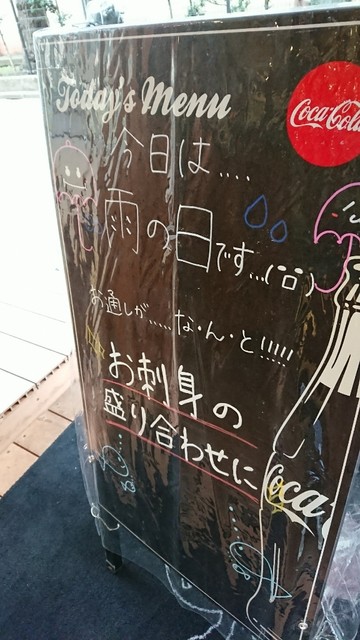 Today's Menu
Coca-Cola
今日は....
雨の日です...(¨ o ¨)
お通しが.....な・ん・と!!!!!
お刺身の
盛り合わせに
Coca